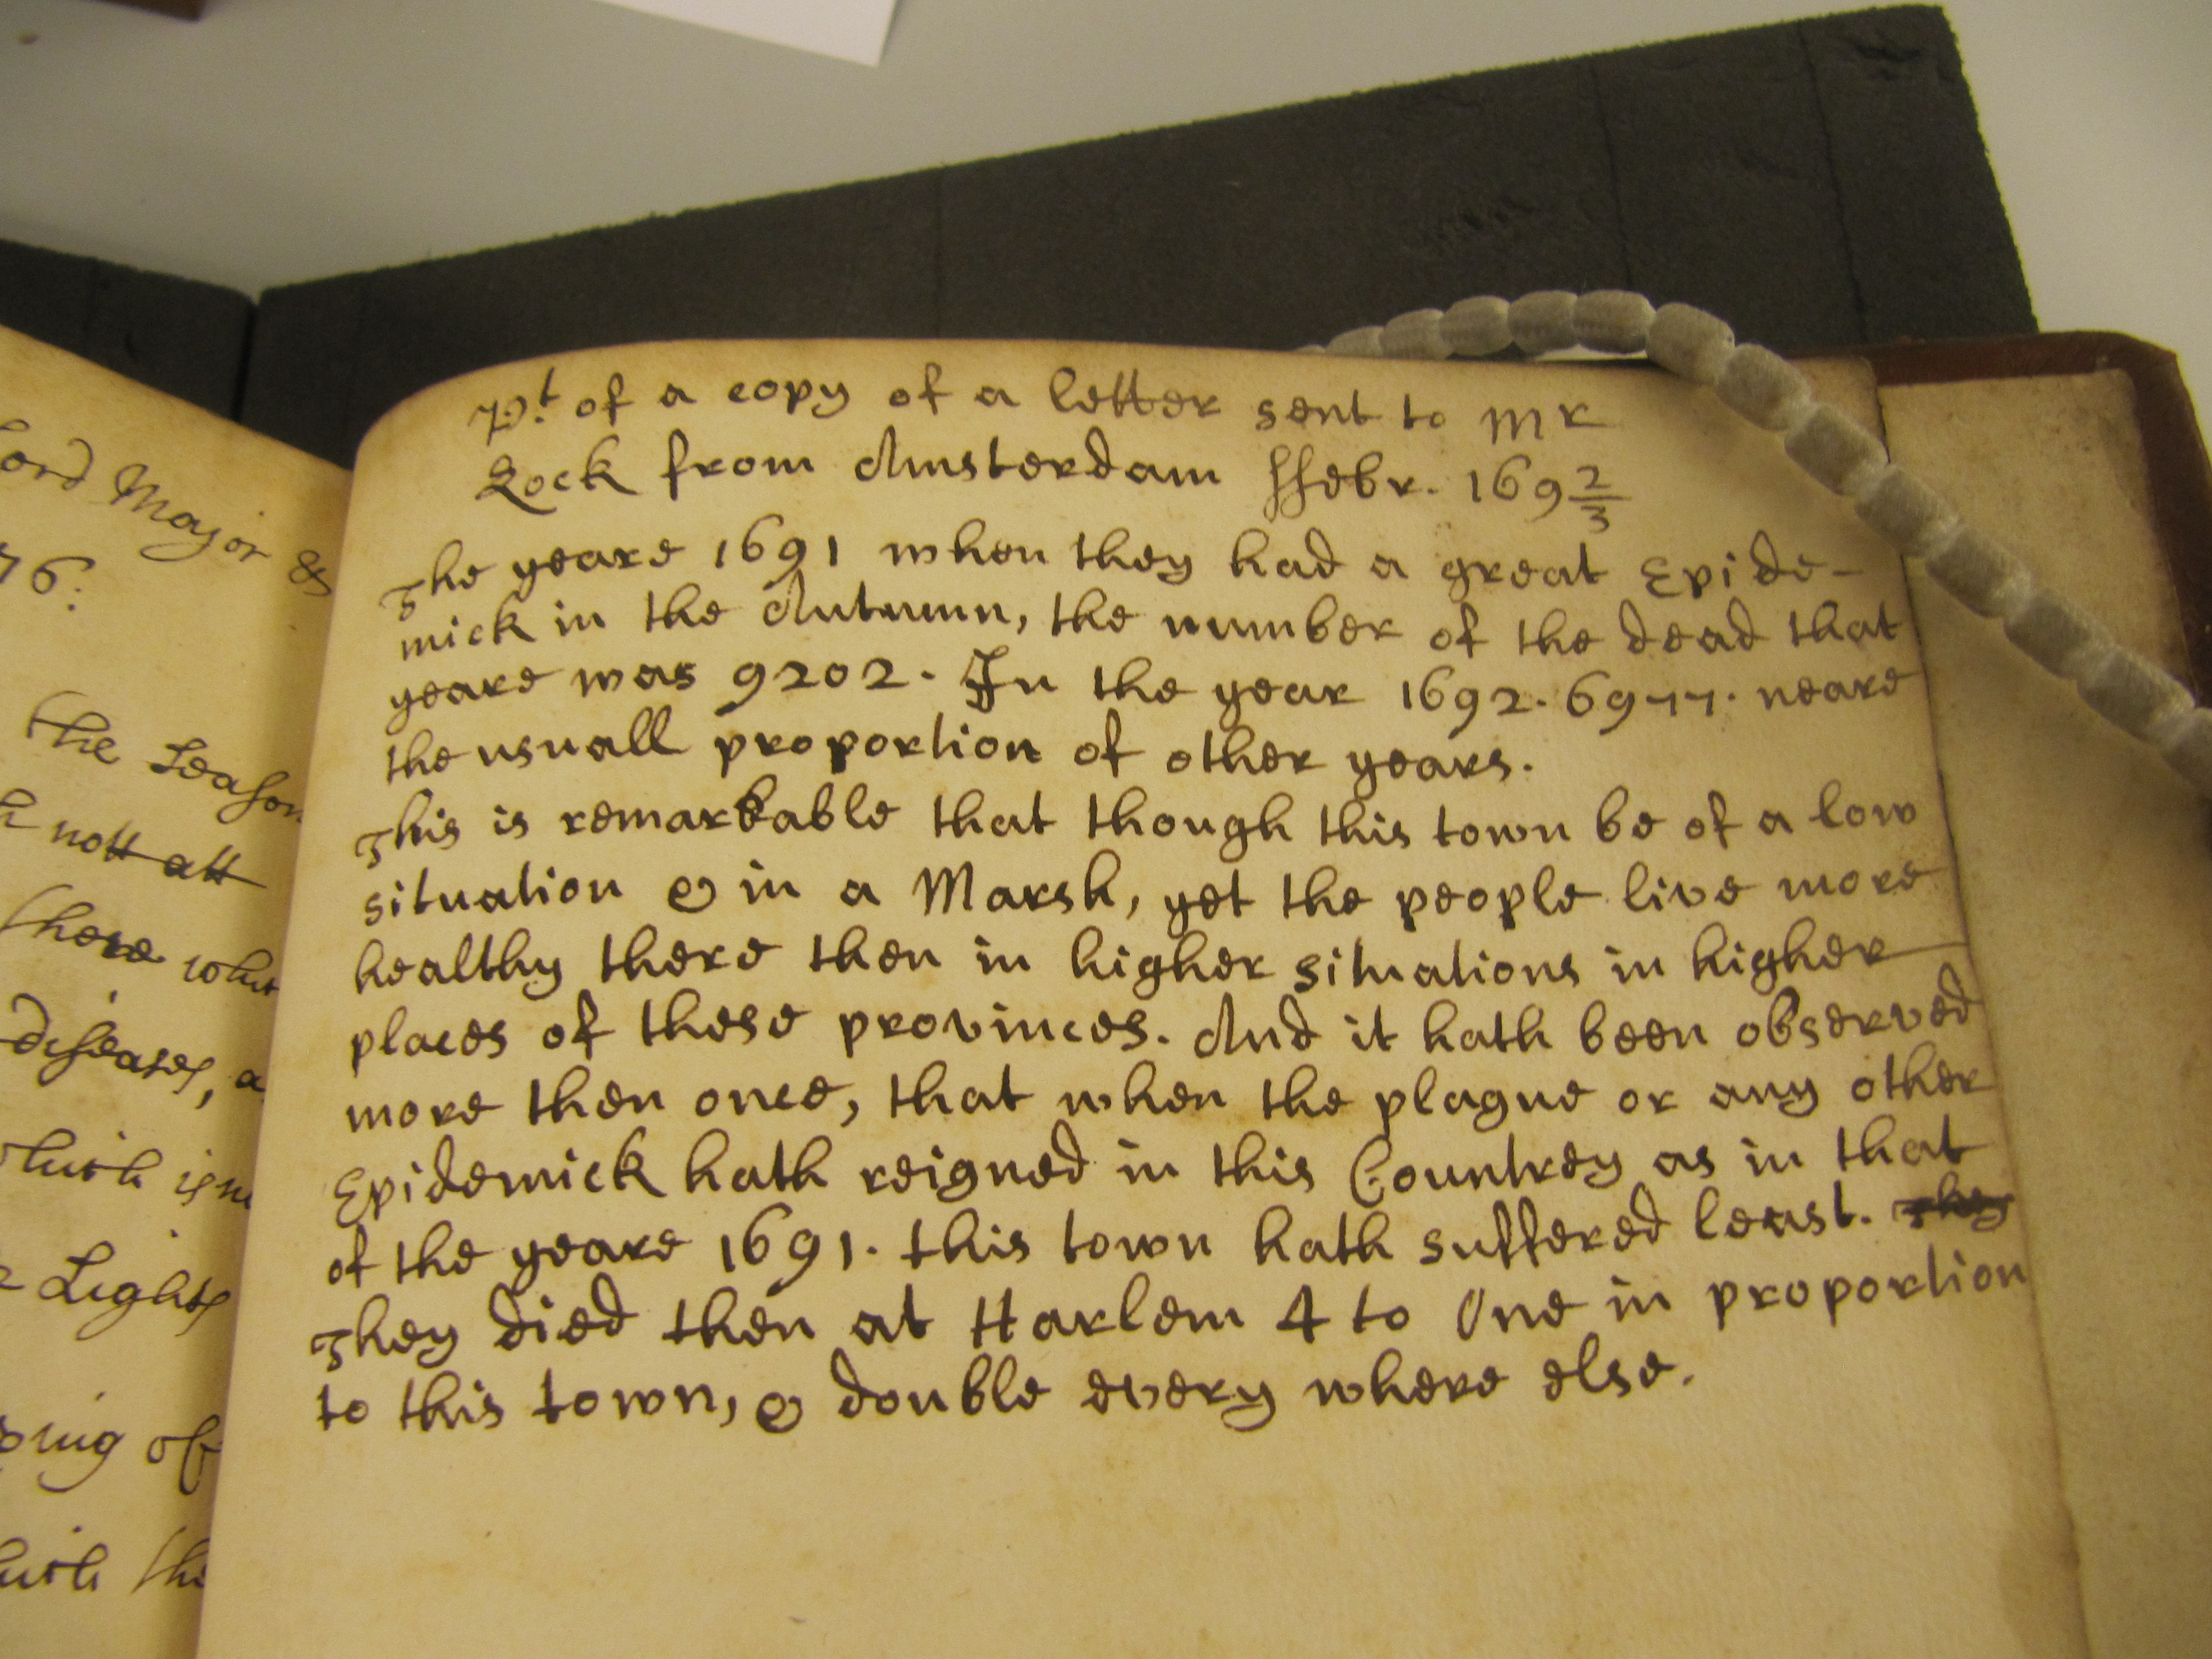 Lord Major &
76:
the Season
nott att
there what
diseases, a
which is
Lights
ing of
with the
Pt. of a copy of a letter sent to Mr
Lock from Amsterdam ffebr. 169 2/3
The yeare 1691 when they had a great Epide-
mick in the Autumn, the number of the dead that
yeare was 9202. In the year 1692. 6977. neare
the usuall proportion of other years.
This is remarkable that though this town be of a low
situation & in a Marsh, yet the people live more
healthy there then in higher situations in higher
places of these provinces. And it hath been observed
more then once, that when the plague or any other
Epidemick hath reigned in this Countrey as in that
of the yeare 1691. this town hath suffered least. They
They died then at Harlem 4 to One in proportion
to this town, & double every where else.